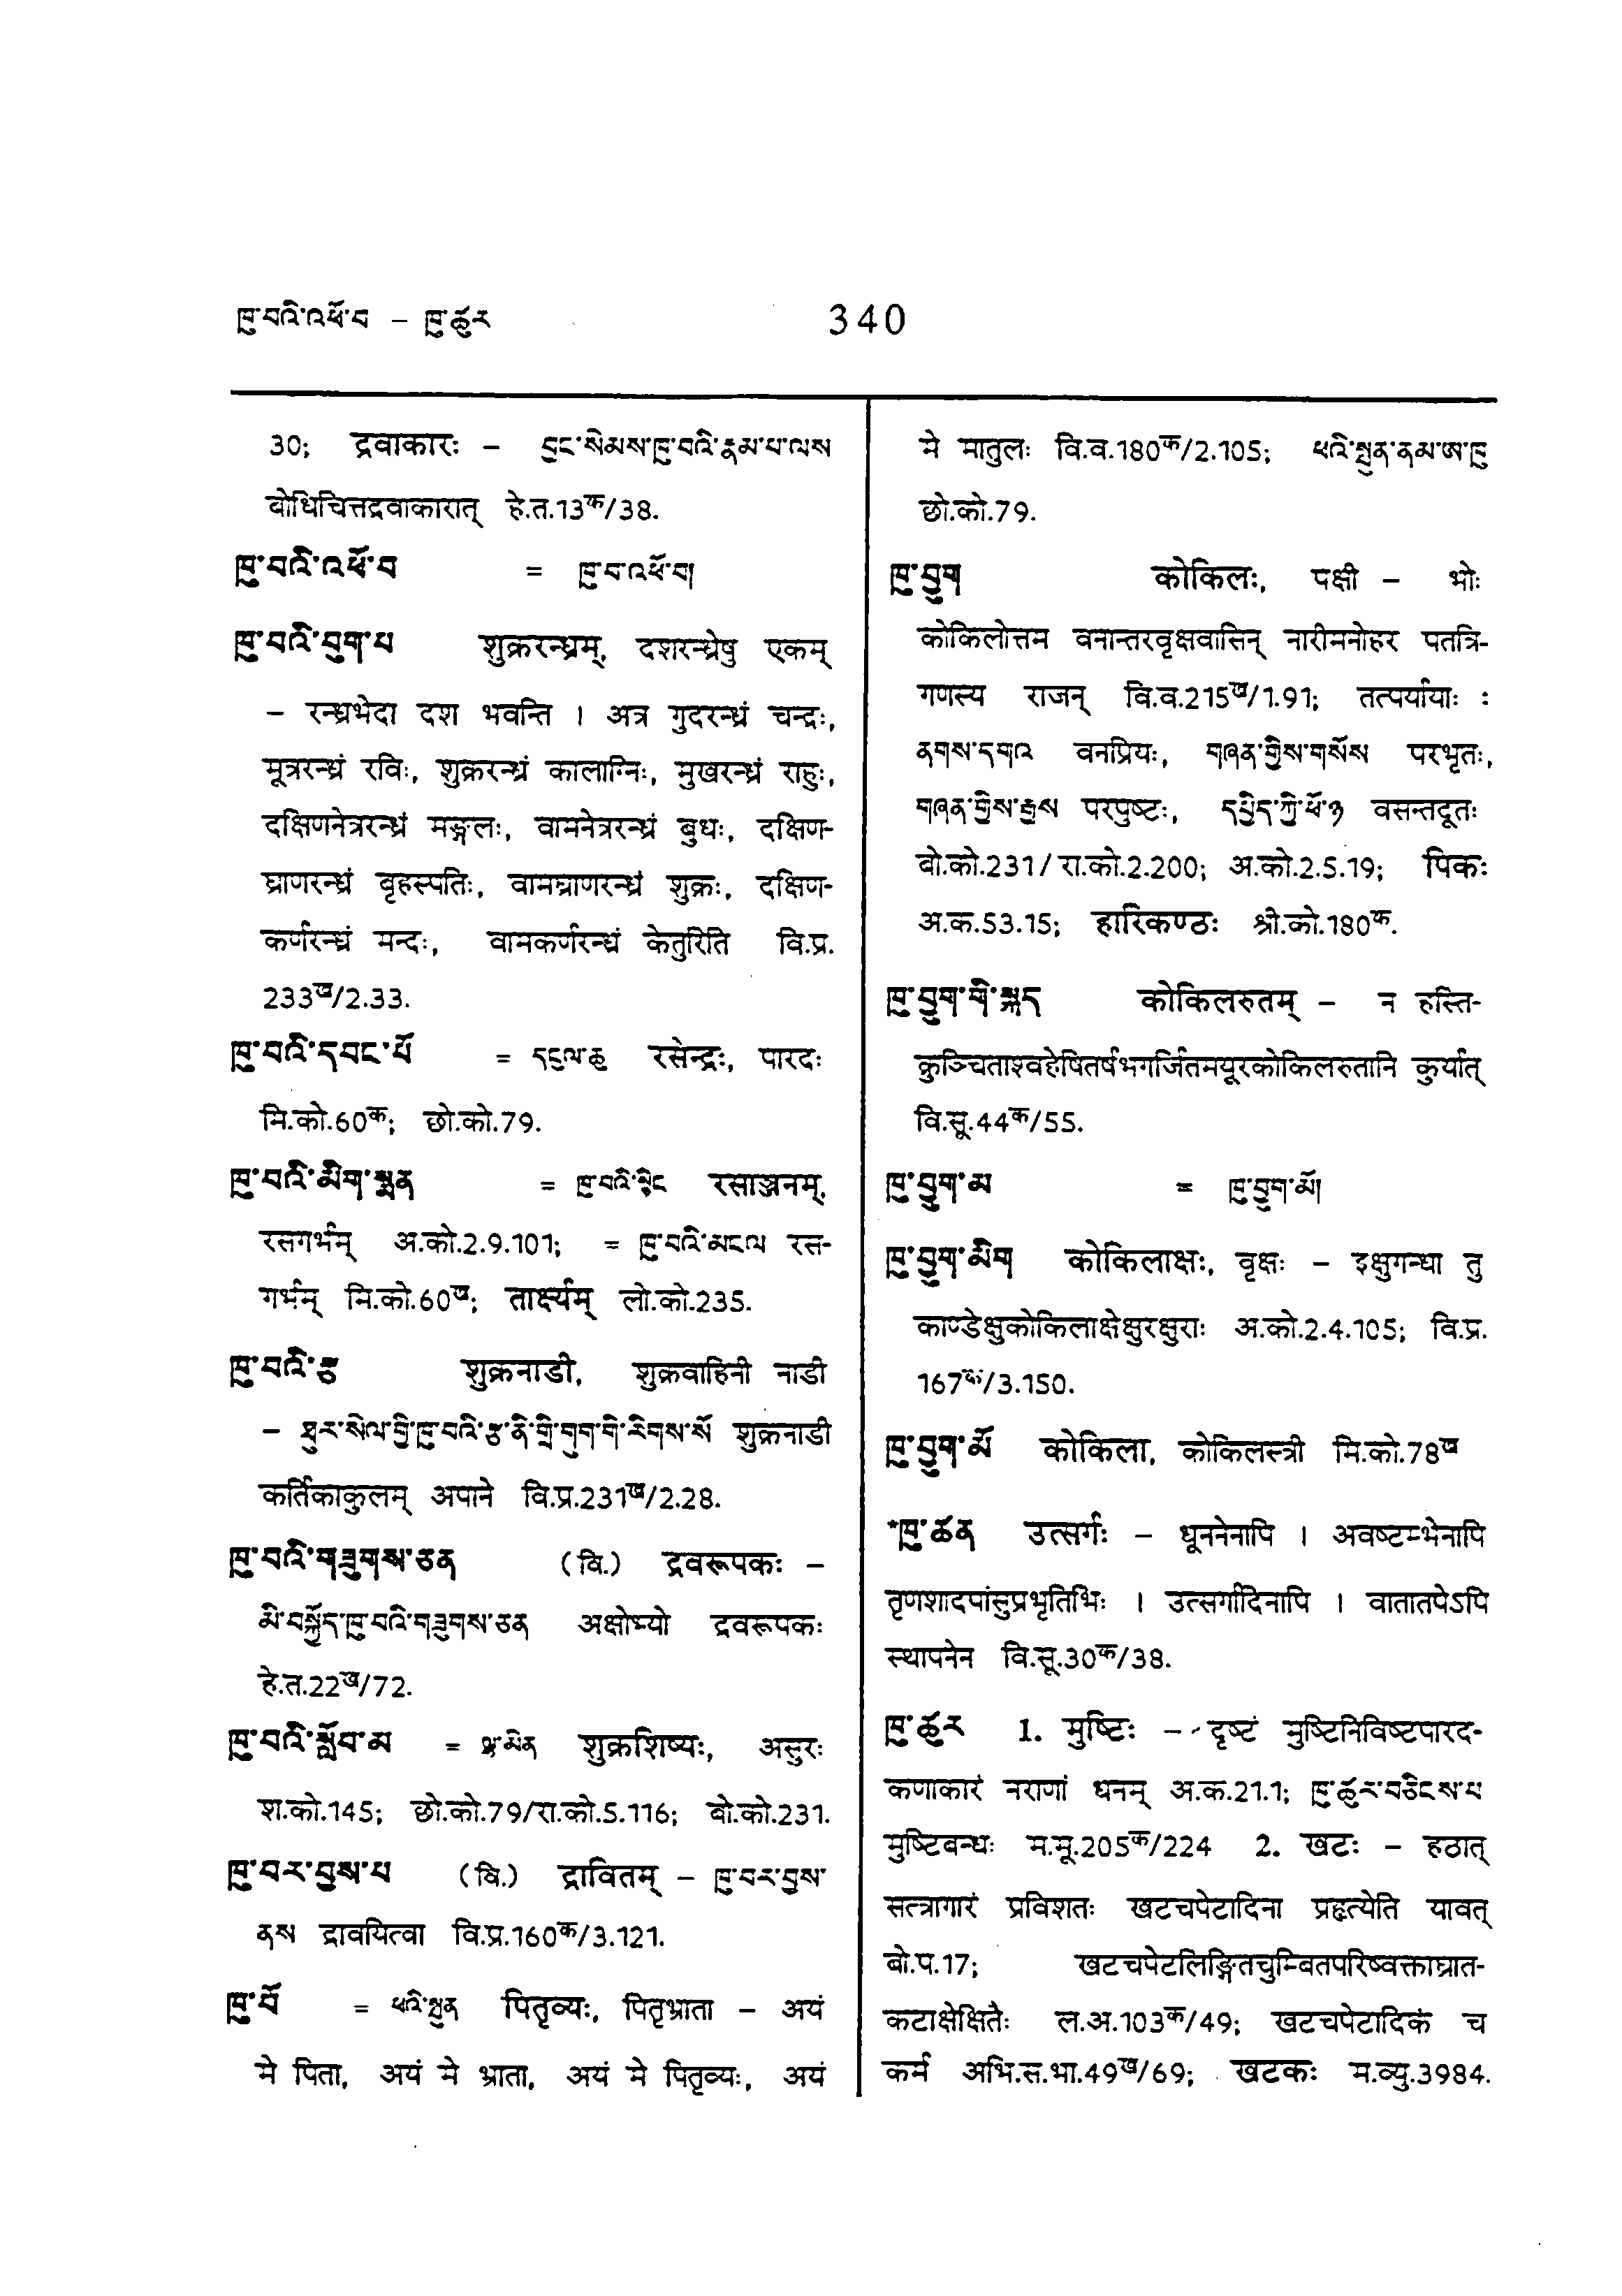 ཁུ་བའི་འཕོ་བ – ཁུ་ཚུར
340
30; द्रवाकारः – བྱང་སེམས་ཁུ་བའི་རྣམ་པ་ལས
बोधिचित्तद्रवाकारात् हे.त.13क/38.
ཁུ་བའི་འཕོ་བ = ཁུ་བ་འཕོ་བ།
ཁུ་བའི་བུག་པ शुक्ररन्ध्रम्, दशरन्ध्रेषु एकम्
– रन्ध्रभेदा दश भवन्ति । अत्र गुदरन्ध्रं चन्द्रः,
मूत्ररन्ध्रं रविः, शुक्ररन्ध्रं कालाग्निः, मुखरन्ध्रं राहुः,
दक्षिणनेत्ररन्ध्रं मङ्गलः, वामनेत्ररन्ध्रं बुधः, दक्षिण-
घ्राणरन्ध्रं वृहस्पतिः, वामघ्राणरन्ध्रं शुक्रः, दक्षिण-
कर्णरन्ध्रं मन्दः, वामकर्णरन्ध्रं केतुरिति वि.प्र.
233ख/2.33.
ཁུ་བའི་དབང་པོ = དངུལ་ཆུ रसेन्द्रः, पारदः
मि.को.60क; छो.को.79.
ཁུ་བའི་མིག་སྨན = ཁུ་བའི་སྙིང रसाञ्जनम्,
रसगर्भम् अ.को.2.9.101; = ཁུ་བའི་མངལ रस-
गर्भम् मि.को.60ख; तार्क्ष्यम् लो.को.235.
ཁུ་བའི་རྩ शुक्रनाडी, शुक्रवाहिनी नाडी
– ཐུར་སེལ་གྱི་ཁུ་བའི་རྩ་ནི་གྲི་གུག་གི་རིགས་སོ शुक्रनाडी
कर्तिकाकुलम् अपाने वि.प्र.231ख/2.28.
ཁུ་བའི་གཟུགས་ཅན (वि.) द्रवरूपकः –
མི་བསྐྱོད་ཁུ་བའི་གཟུགས་ཅན अक्षोभ्यो द्रवरूपकः
हे.त.22ख/72.
ཁུ་བའི་སློབ་མ = ལྷ་མིན शुक्रशिष्यः, असुरः
श.को.145; छो.को.79/रा.को.5.116; बो.को.231.
ཁུ་བར་བྱས་པ (वि.) द्रावितम् – ཁུ་བར་བྱས་
ནས द्रावयित्वा वि.प्र.160क/3.121.
ཁུ་བོ = ཕའི་སྤུན पितृव्यः, पितृभ्राता – अयं
मे पिता, अयं मे भ्राता, अयं मे पितृव्यः, अयं
मे मातुलः वि.व.180क/2.105; ཕའི་སྤུན་ནམ་ཨ་ཁུ
छो.को.79.
ཁུ་བྱུག कोकिलः, पक्षी – भोः
कोकिलोत्तम वनान्तरवृक्षवासिन् नारीमनोहर पतत्रि-
गणस्य राजन् वि.व.215ख/1.91; तत्पर्यायाः :
ནགས་དགའ वनप्रियः, གཞན་གྱིས་གསོས परभृतः,
གཞན་གྱིས་རྒྱས परपुष्टः, དཔྱིད་ཀྱི་ཕོ་ཉ वसन्तदूतः
बो.को.231/रा.को.2.200; अ.को.2.5.19; पिकः
अ.क.53.15; हारिकण्ठः श्री.को.180क.
ཁུ་བྱུག་གི་སྐད कोकिलरुतम् – न हस्ति-
क्रुञ्चिताश्वहेषितर्षभगर्जितमयूरकोकिलरुतानि कुर्यात्
वि.सू.44क/55.
ཁུ་བྱུག་མ = ཁུ་བྱུག་མོ།
ཁུ་བྱུག་མིག कोकिलाक्षः, वृक्षः – इक्षुगन्धा तु
काण्डेक्षुकोकिलाक्षेक्षुरक्षुराः अ.को.2.4.105; वि.प्र.
167क/3.150.
ཁུ་བྱུག་མོ कोकिला, कोकिलस्त्री मि.को.78ख
*ཁུ་ཚན उत्सर्गः – धूननेनापि । अवष्टम्भेनापि
तृणशादपांसुप्रभृतिभिः । उत्सर्गादिनापि । वातातपेऽपि
स्थापनेन वि.सू.30क/38.
ཁུ་ཚུར 1. मुष्टिः – दृष्टं मुष्टिनिविष्टपारद-
कणाकारं नराणां धनम् अ.क.21.1; ཁུ་ཚུར་བཅིངས་པ
मुष्टिबन्धः म.मू.205क/224 2. खटः – हठात्
सत्त्रागारं प्रविशतः खटचपेटादिना प्रहृत्येति यावत्
बो.प.17; खटचपेटलिङ्गितचुम्बितपरिष्वक्ताघ्रात-
कटाक्षेक्षितैः ल.अ.103क/49; खटचपेटादिकं च
कर्म अभि.स.भा.49ख/69; खटकः म.व्यु.3984.